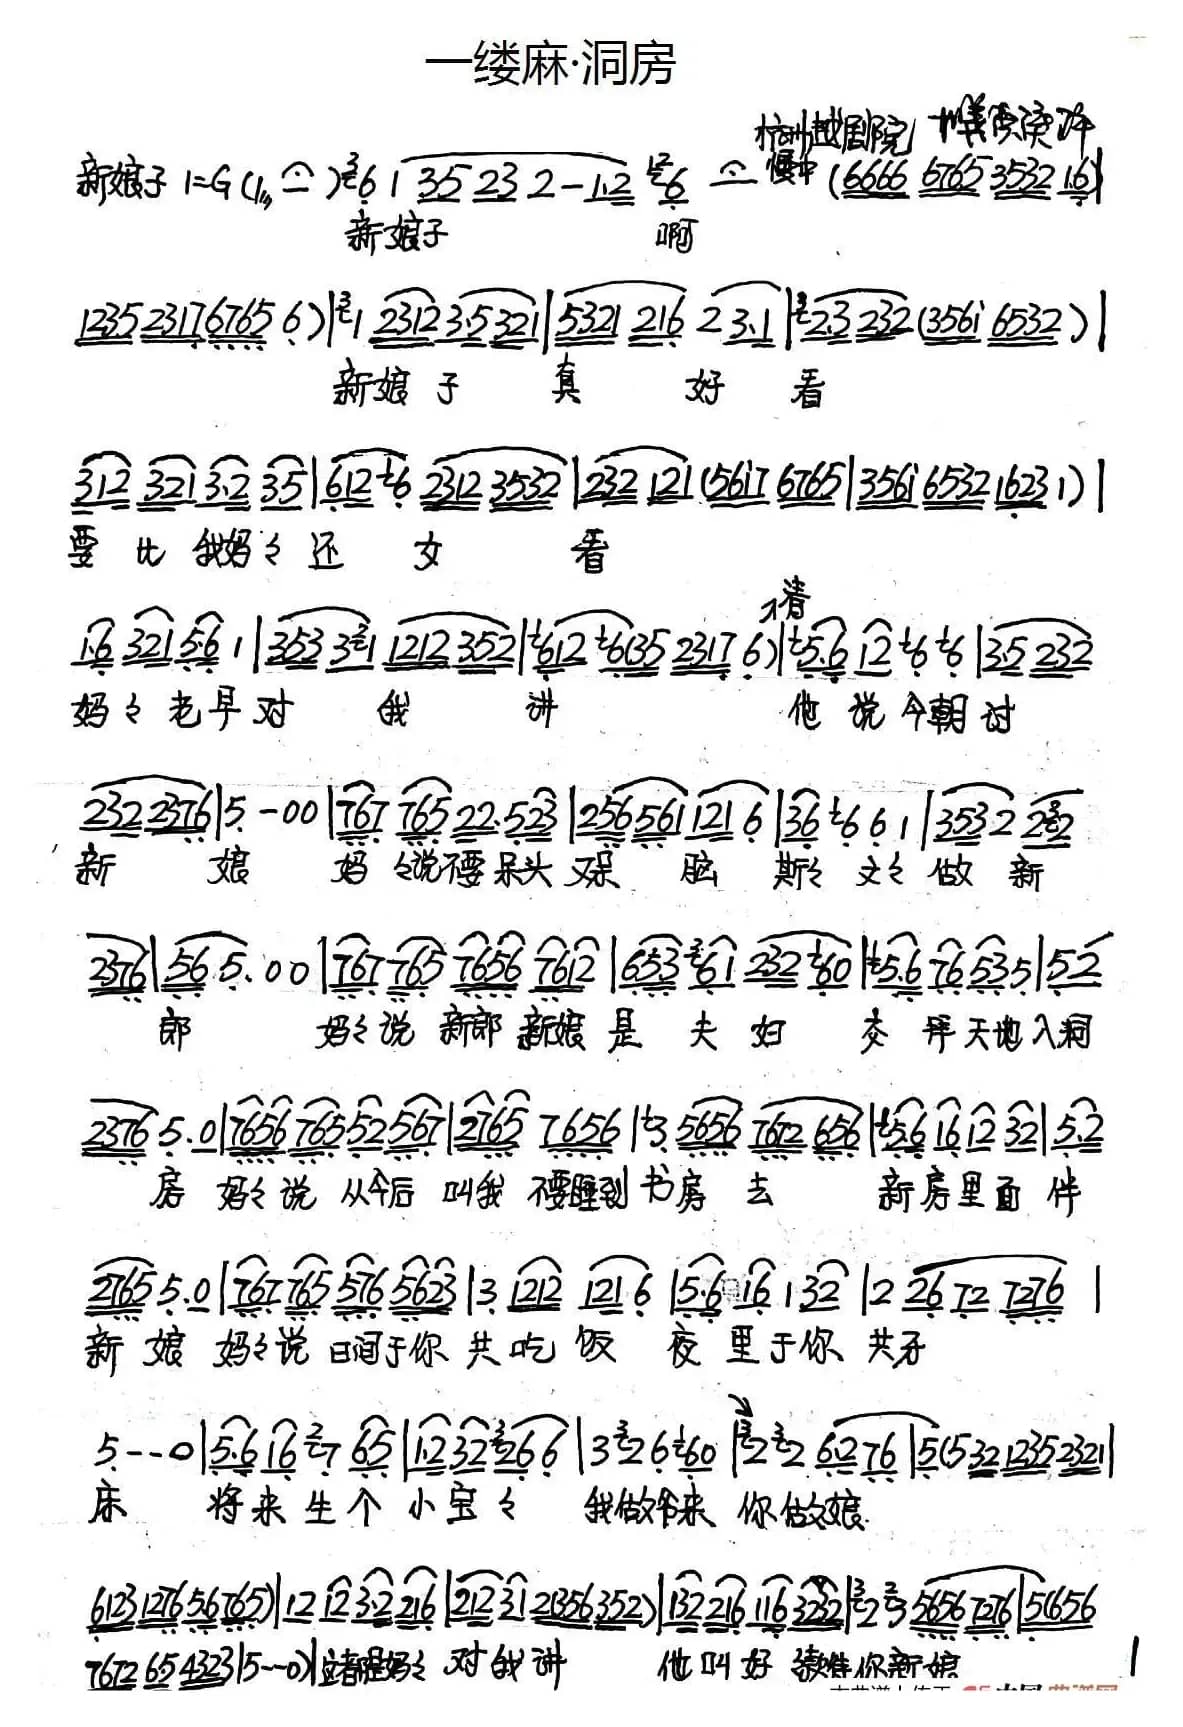 一缕麻·洞房
杭州越剧院
新娘子 1=G (1,, ⌒) 6 1 3.5 23 2 - 1.2 6 慢中 (6666 6765 3532 1.6)
新娘子 啊
1235 2317 6765 6) | 1 2312 3.5 321 | 5321 216 2 3.1 | 2.3 232 (3561 6532) |
新娘子 真 好 看
312 321 3.2 35 | 612 6 2312 3532 | 232 121 (5617 6765 | 3561 6532 1623 1) |
要 比 我妈々还 女 看
清
1.6 321 5.6 1 | 353 3 1 1212 352 | 612 6(35 2317 6) | 5.6 12 6 6 | 3.5 232
妈々老早对 我 讲 他说今朝讨
232 2376 | 5 - 0 0 | 767 765 22.523 | 256 561 121 6 | 36 6 6 1 | 353 2 2 2
新 娘 妈々说不要呆头又呆脑 斯々文々做新
2376 | 56 5.00 | 767 765 7656 7612 | 653 61 232 60 | 5.6 76 53 5 | 52
郎 妈々说新郎新娘是夫妇 交拜天地入洞
2376 5.0 | 7656 765 52 567 | 2765 7656 | 3 5656 7672 656 | 5.6 16 12 32 | 5.2
房 妈々说从今后叫我不要睡到书房去 新房里面伴
2765 5.0 | 767 765 576 5623 | 3 1212 121 6 | 5.6 16 1 32 | 2 26 72 7276 |
新娘 妈々说日间于你共吃饭 夜里于你共
5 - - 0 | 5.6 16 7 65 | 12 32 26 6 | 3 2 6 60 | 2 2 6.2 76 | 5 (5 32 1235 2321 |
床 将来生个小宝々 我做爷来你做娘
6123 1276 56 765) | 12 12 3.2 216 | 212 31 2(356 352) | 132 216 116 3232 | 2 3 5656 7276 | 5(656
7672 6.5 4323 | 5 - - 0) | 这都是妈々对我讲 他叫好 伴你新娘